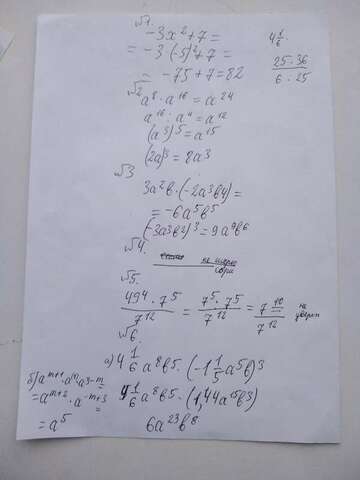 √1.
-3x²+7=
= -3·(-5)²+7=
= -75+7=82
4 1/6
25·36
6·25
√2 a⁸·a¹⁶=a²⁴
a¹⁶:a⁴=a¹²
(a³)⁵=a¹⁵
(2a)³=8a³
√3
3a²b·(-2a³b⁴)=
= -6a⁵b⁵
(-3a³b²)³=9a⁹b⁶
√4.
√5.
49⁴·7⁵ / 7¹² = 7⁵·7⁵ / 7¹² = 7¹⁰ / 7¹² не уверен
√6.
а) 4 1/6 a⁸b⁵·(-1 1/5 a⁵b)³
4 1/6 a⁸b⁵·(1,44a¹⁵b³)
6a²³b⁸
б) aᵐ⁺¹·a
=aᵐ⁺²·a⁻ᵐ⁺³=
=a⁵